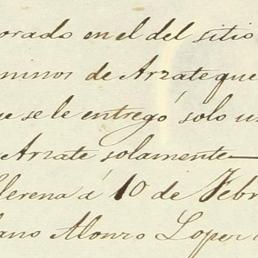 orado en el del sitio
minos de Arzate que
ue se le entregó solo u
Arzate solamente
llerena á 10 de Febr
ano Alonzo Lopez